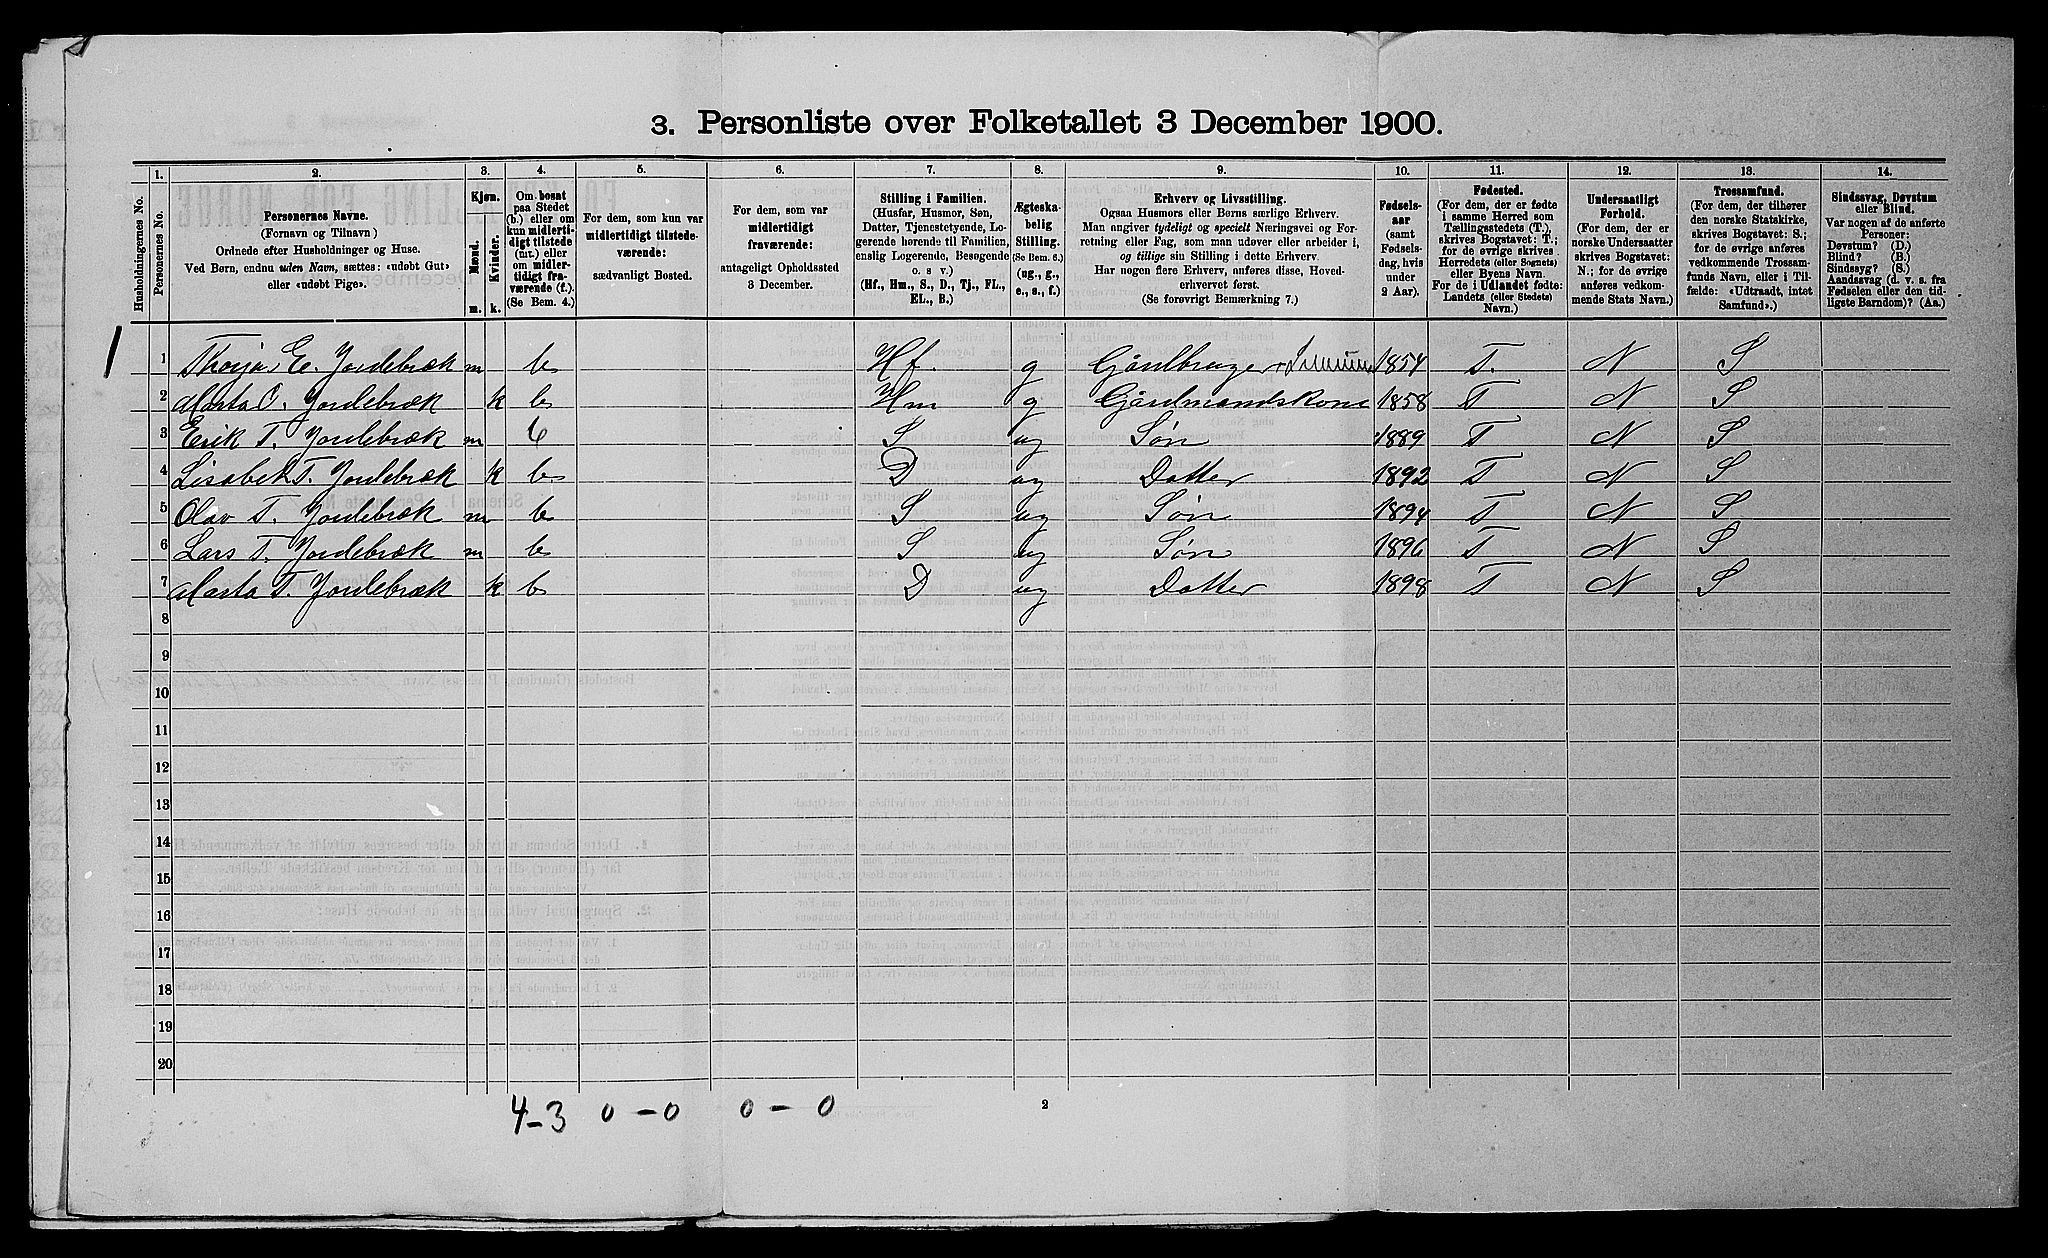 3. Personliste over Folketallet 3 December 1900.
Husholdningernes No.
1. Personernes No.
2. Personernes Navne. (Fornavn og Tilnavn) Ordnede efter Husholdninger og Huse. Ved Børn, endnu uden Navn, sættes: «udøbt Gut» eller «udøbt Pige».
3. Kjøn. Mænd. m. Kvinder. k.
4. Om bosat paa Stedet (b.) eller om kun midlertidigt tilstede (mt.) eller om midlertidigt fraværende (f.). (Se Bem. 4.)
5. For dem, som kun var midlertidigt tilstedeværende: sædvanligt Bosted.
6. For dem, som var midlertidigt fraværende: antageligt Opholdssted 3 December.
7. Stilling i Familien. (Husfar, Husmor, Søn, Datter, Tjenestetyende, Logerende hørende til Familien, enslig Logerende, Besøgende o. s v.) (Hf., Hm., S., D., Tj., FL., EL., B.)
8. Ægteskabelig Stilling. (Se Bem. 6.) (ug., g., e., s., f.)
9. Erhverv og Livsstilling. Ogsaa Husmors eller Børns særlige Erhverv. Man angiver tydeligt og specielt Næringsvei og Forretning eller Fag, som man udøver eller arbeider i, og tillige sin Stilling i dette Erhverv. Har nogen flere Erhverv, anføres disse, Hovederhvervet først. (Se forøvrigt Bemærkning 7.)
10. Fødselsaar (samt Fødselsdag, hvis under 2 Aar).
11. Fødested. (For dem, der er fødte i samme Herred som Tællingsstedets (T.), skrives Bogstavet: T.; for de øvrige skrives Herredets (eller Sognets) eller Byens Navn. For de i Udlandet fødte: Landets (eller Stedets) Navn.)
12. Undersaatligt Forhold. (For dem, der er norske Undersaatter skrives Bogstavet: N.; for de øvrige anføres vedkommende Stats Navn.)
13. Trossamfund. (For dem, der tilhører den norske Statskirke, skrives Bogstavet: S.; for de øvrige anføres vedkommende Trossamfunds Navn, eller i Tilfælde: «Udtraadt, intet Samfund».)
14. Sindssvag, Døvstum eller Blind. Var nogen af de anførte Personer: Døvstum? (D.) Blind? (B.) Sindssyg? (S.) Aandssvag (d. v. s. fra Fødselen eller den tidligste Barndom)? (Aa.)
1 1 E. Jordebræk m b Hf. g Gårdbruger 1854 T. N S
2 Marta O. Jordebræk k b Hm g Gårdmandskone 1858 T N S
3 Erik T. Jordebræk m b S ug Søn 1889 T N S
4 Lisabet T. Jordebræk k b D ug Datter 1892 T N S
5 Olav T. Jordebræk m b S ug Søn 1894 T N S
6 Lars T. Jordebræk m b S ug Søn 1896 T N S
7 Marta T. Jordebræk k b D ug Datter 1898 T N S
8
9
10
11
12
13
14
15
16
17
18
19
20
4-3 0-0 0-0 2